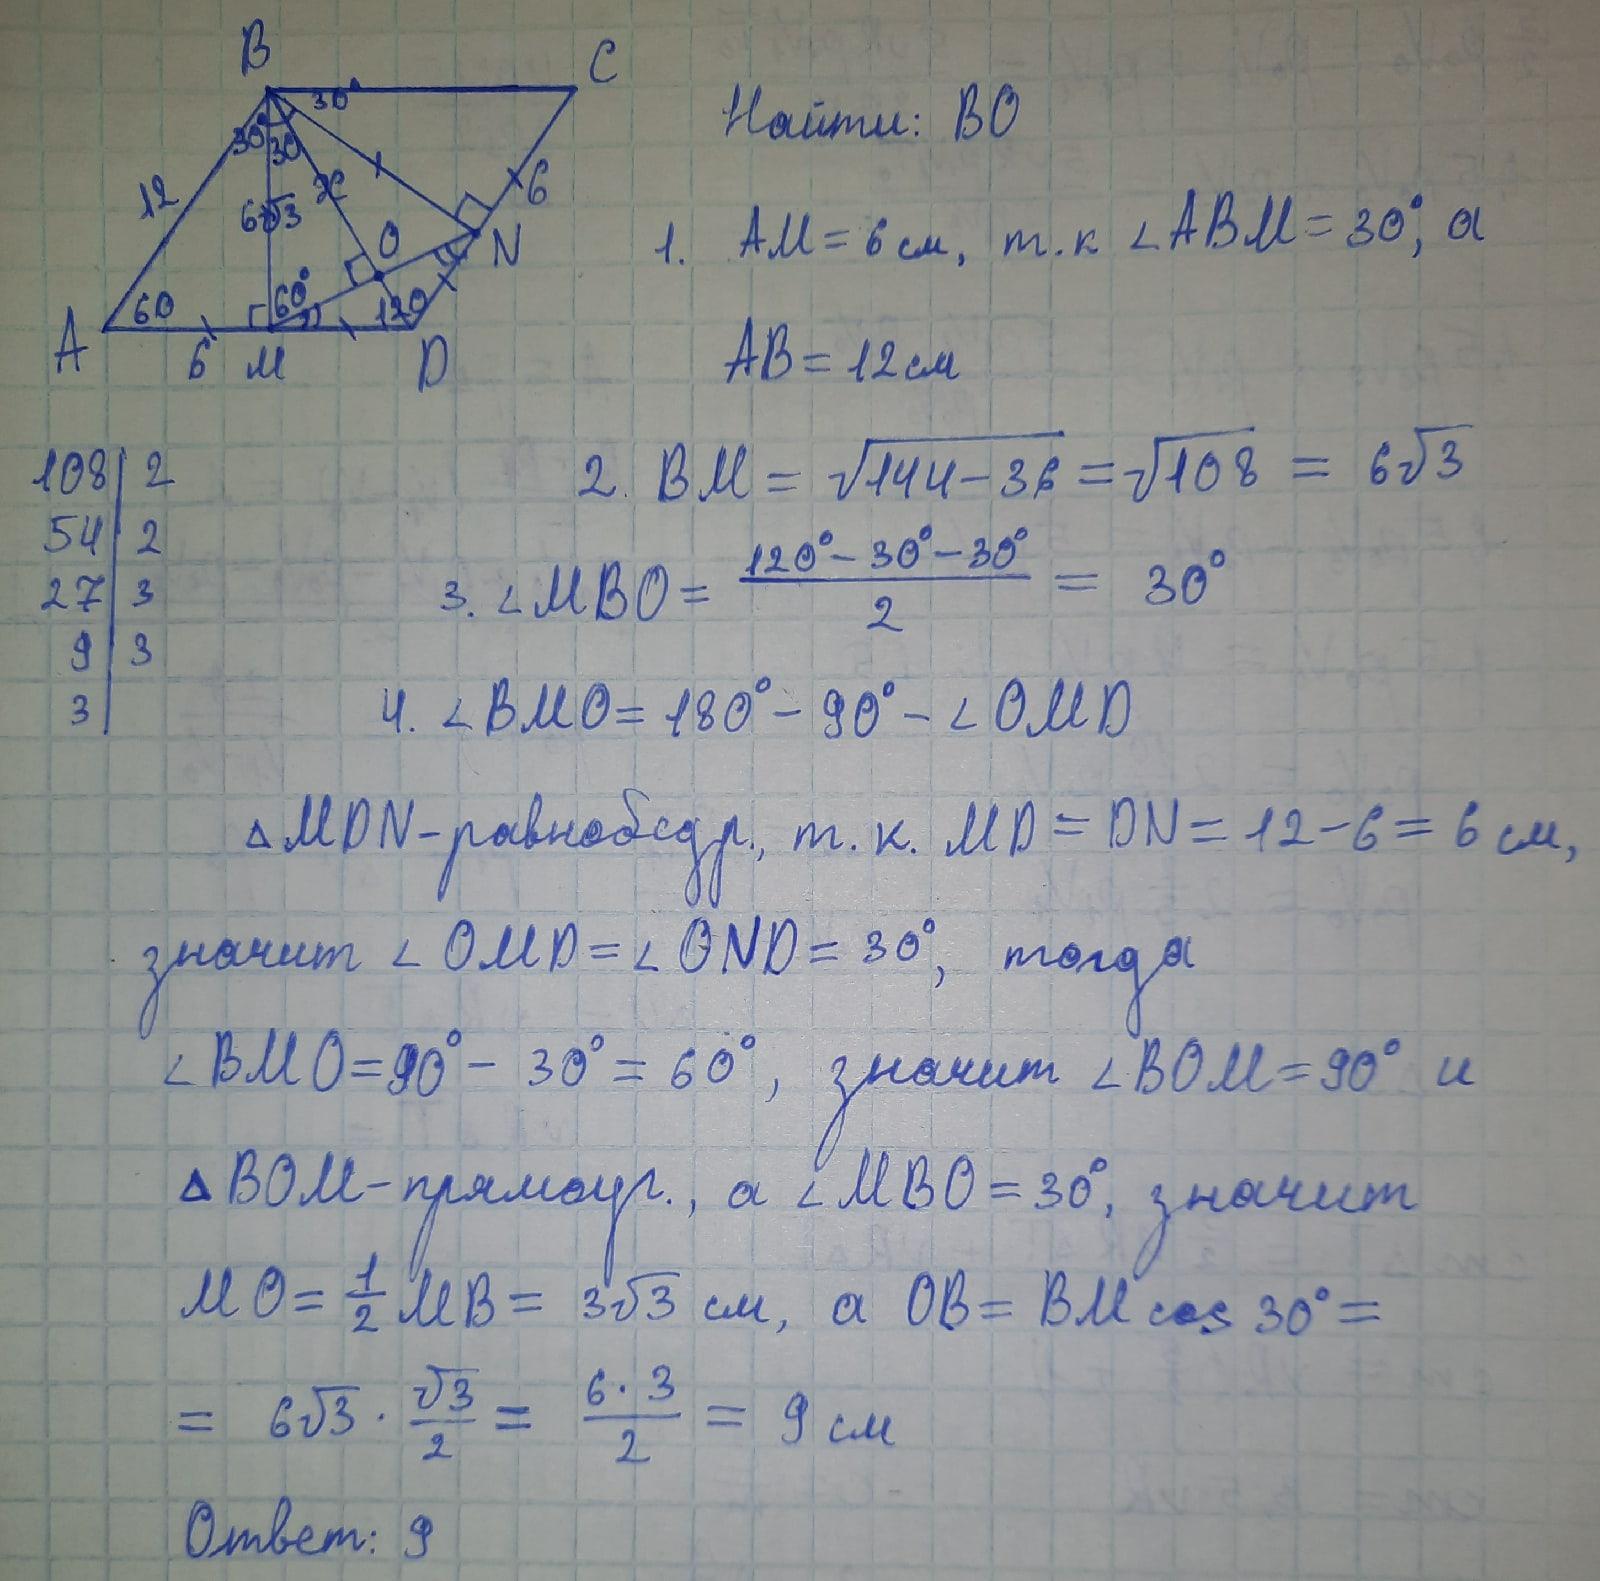 B
C
30°
30°
30
12
6√3
x
6
O
N
60
60°
120
A
6
M
D
Найти: BO
1. AM = 6 см, т.к ∠ABM = 30°, а
AB = 12 см
108 | 2
54 | 2
27 | 3
9 | 3
3
2. BM = √144-36 = √108 = 6√3
3. ∠MBO = (120°-30°-30°)/2 = 30°
4. ∠BMO = 180° - 90° - ∠OMD
△MDN - равнобедр., т.к. MD = DN = 12-6 = 6 см,
значит ∠OMD = ∠OND = 30°, тогда
∠BMO = 90° - 30° = 60°, значит ∠BOM = 90° и
△BOM - прямоуг., а ∠MBO = 30°, значит
MO = 1/2 MB = 3√3 см, а OB = BM cos 30° =
= 6√3 · √3/2 = 6·3/2 = 9 см
Ответ: 9